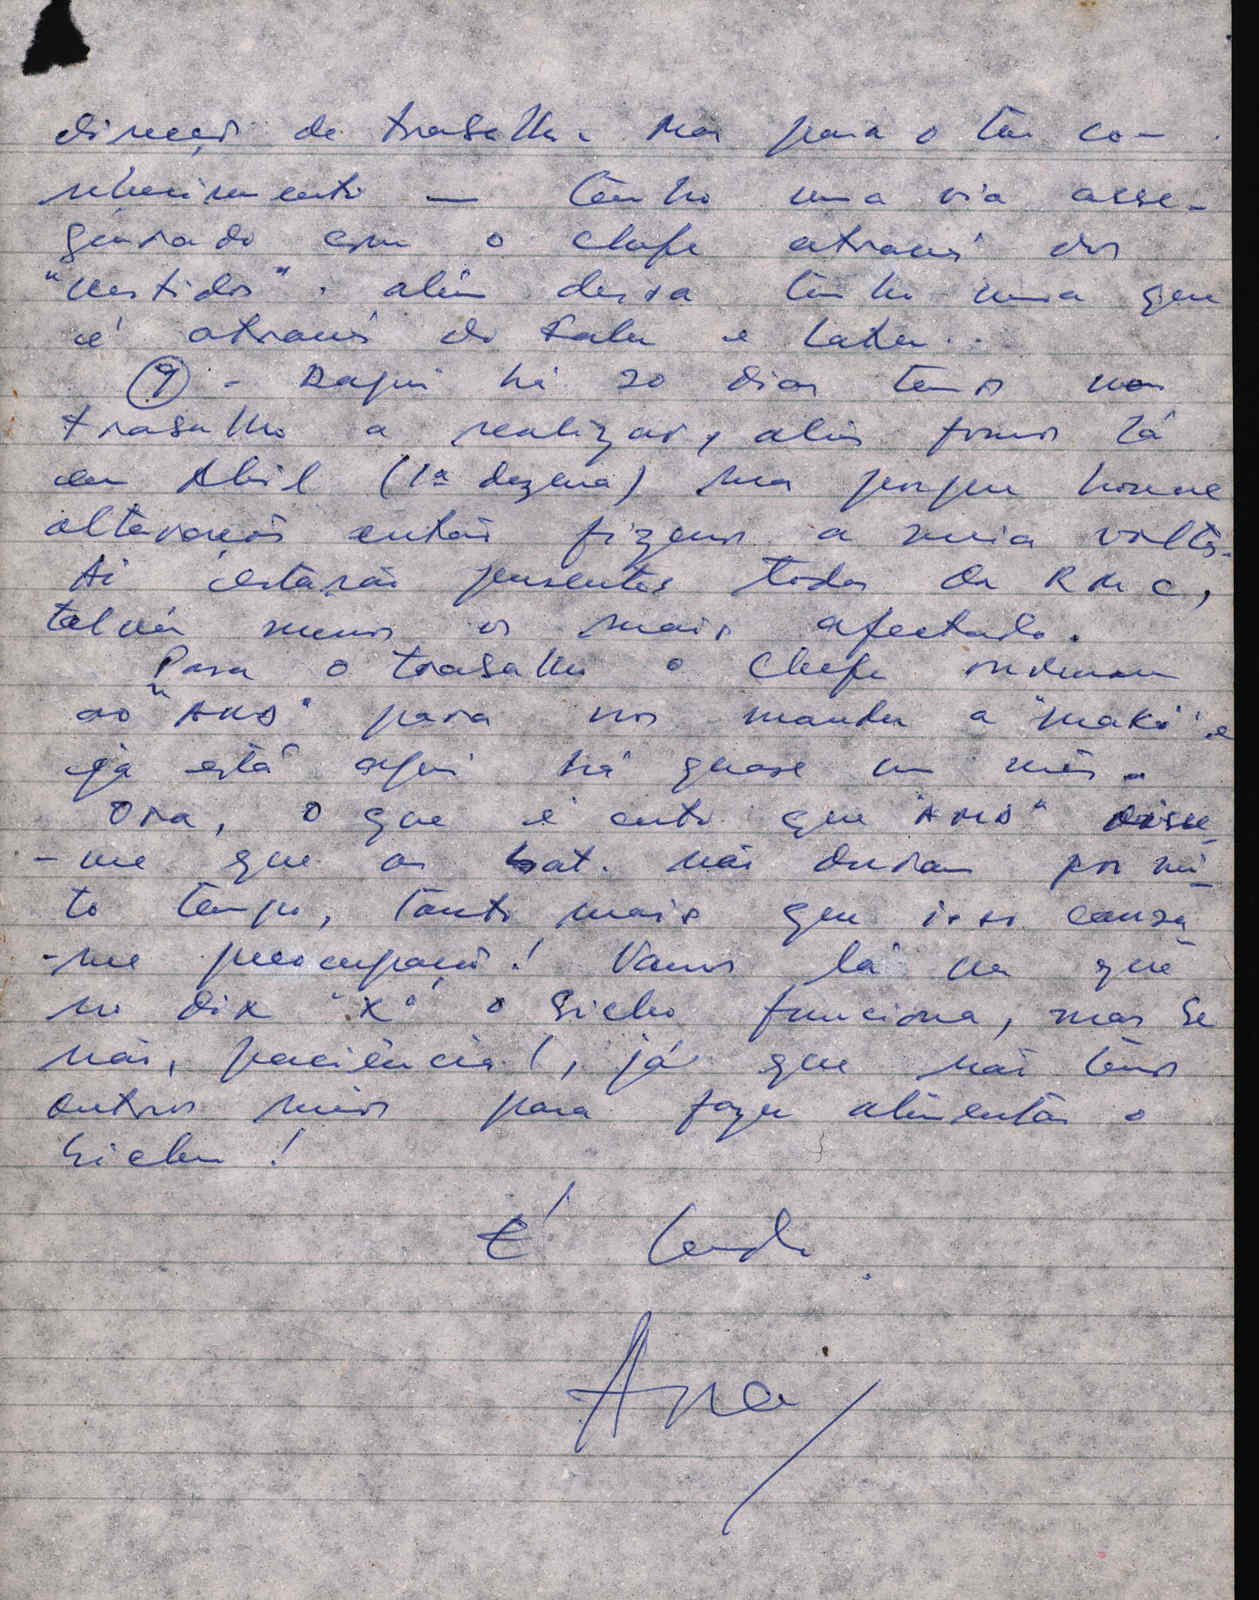 direcção de trabalho. Mas para o teu co-
nhecimento — tenho uma via asse-
gurada com o chefe através dos
"vestidos". além dessa tenho uma que
é através do e
⑨ - Daqui há 20 dias temos um
trabalho a realizar, aliás fomos lá
em Abril (1ª dezena) mas porque houve
alterações então fizemos a meia volta.
Aí estarão presentes todos da RMC,
talvez menos os mais afectados.
Para o trabalho o Chefe ordenou
ao "AMO" para nos mandar a "maka" e
já está aqui há quase um mês.
Ora, o que é certo que "AMO" disse
-me que as bat. não duram por mui-
to tempo, tanto mais que isso causa
-me preocupação! Vamos lá ver que
no dia "X" o bicho funciona, mas se
não, paciência!, já que não temos
outros meios para fazer alimentar o
bicho!
É
Ana